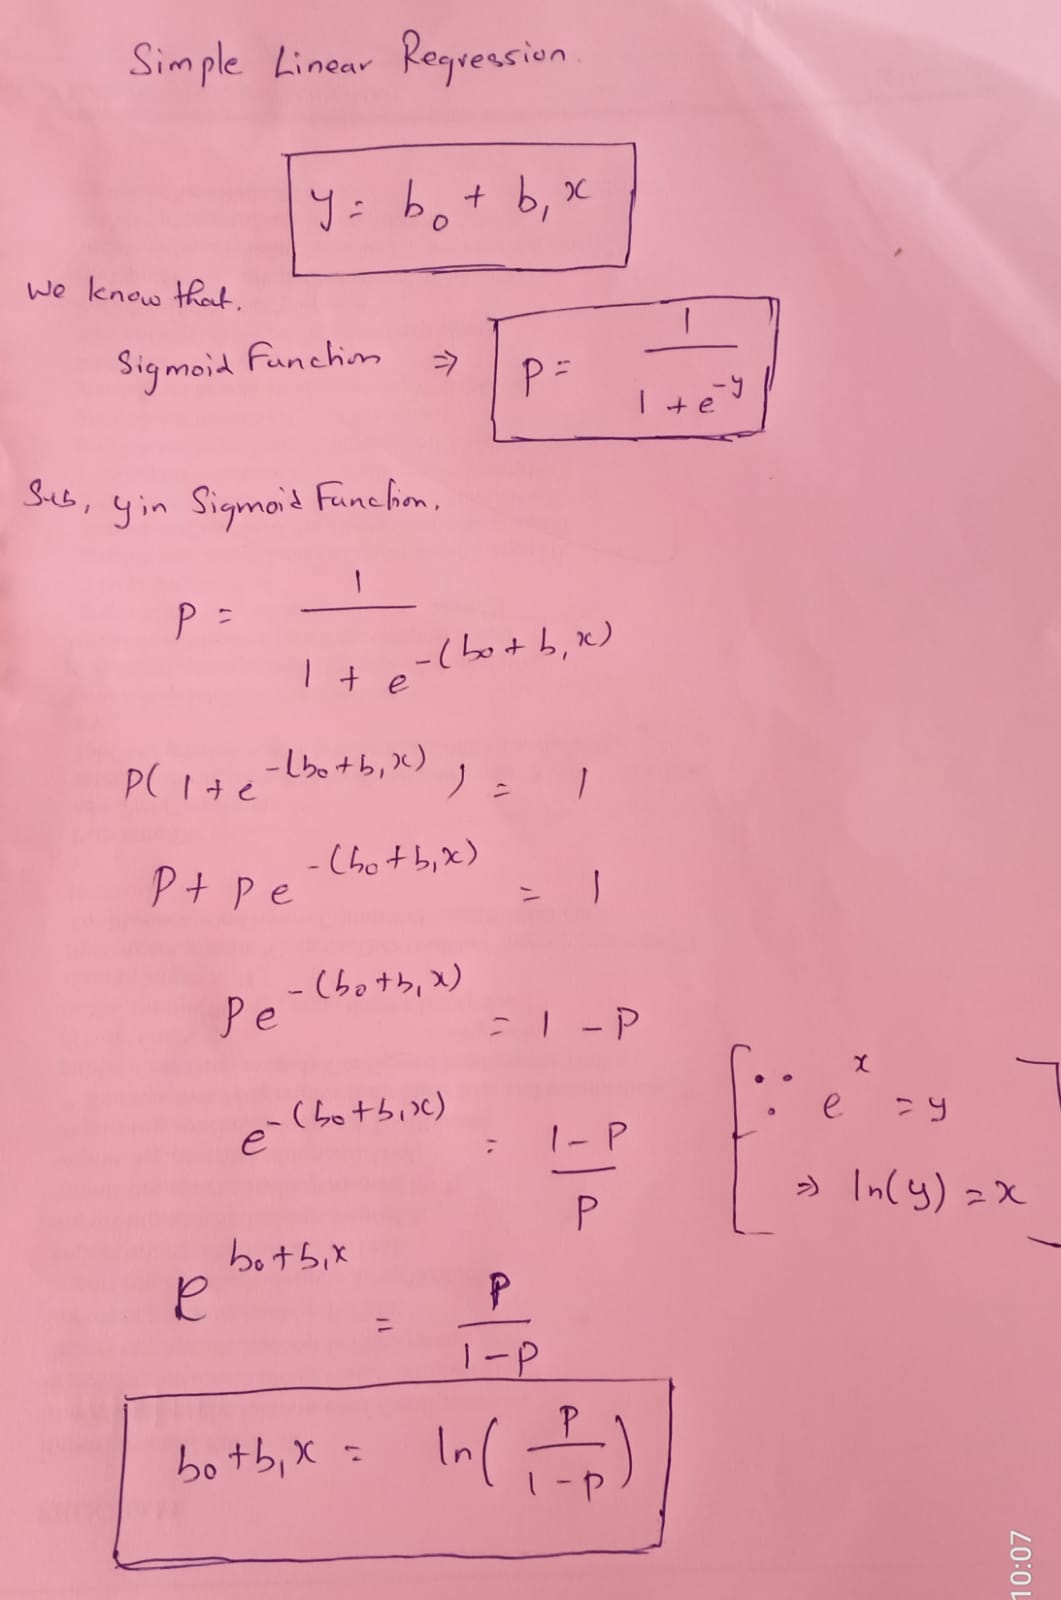 Simple Linear Regression.
y = b₀ + b₁x
We know that,
Sigmoid Function ⇒ P = 1 / (1 + e^-y)
Sub, y in Sigmoid Function,
P = 1 / (1 + e^-(b₀ + b₁x))
P(1 + e^-(b₀+b₁x)) = 1
P + Pe^-(b₀+b₁x) = 1
Pe^-(b₀+b₁x) = 1 - P
e^-(b₀+b₁x) = (1-P) / P
[∵ e^x = y
⇒ ln(y) = x]
e^b₀+b₁x = P / (1-P)
b₀+b₁x = ln(P / (1-P))
10:07